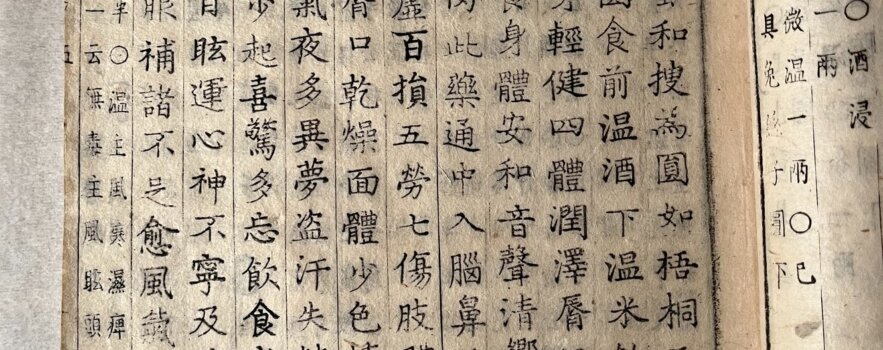 〇酒浸
微温一兩〇巳
一兩
具兔絲子圓下
和搜為圓如梧桐
食前温酒下温米
輕健四體潤澤脣
食身體安和音聲清響
此藥通中入腦鼻
虛百損五勞七傷肢
脊口乾燥面體少色
氣夜多異夢盗汗失
少起喜驚多忘飲食
目眩運心神不寧及
眼補諸不足愈風氣
半〇温主風寒濕痺
一云無毒主風眩頭
五